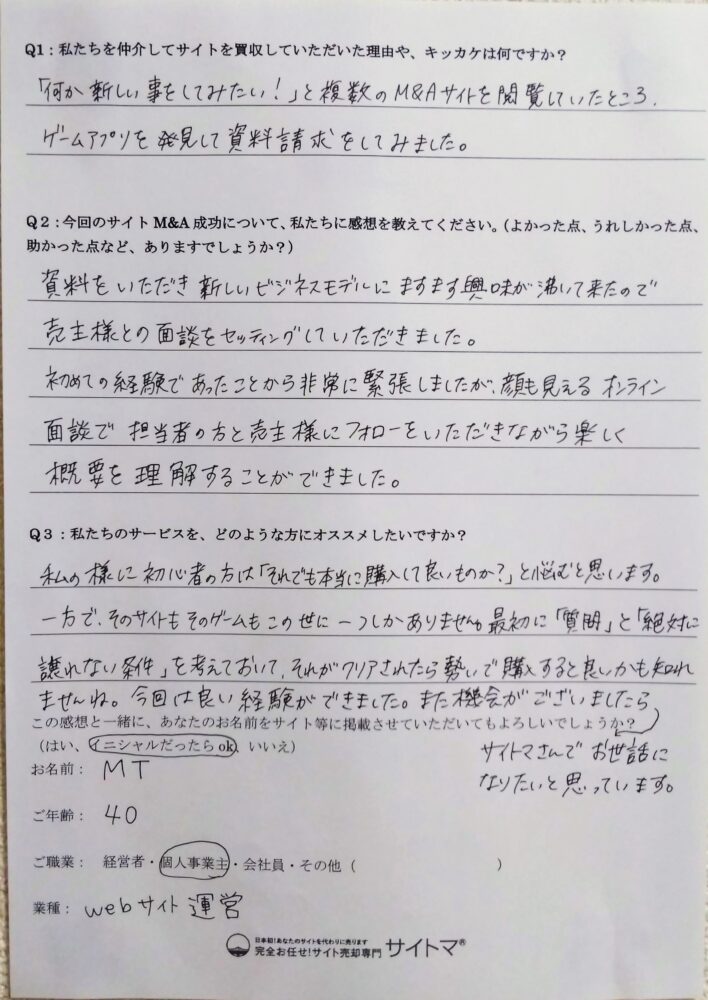 Q1：私たちを仲介してサイトを買収していただいた理由や、キッカケは何ですか？
「何か新しい事をしてみたい！」と複数のM&Aサイトを閲覧していたところ、
ゲームアプリを発見して資料請求をしてみました。
Q2：今回のサイトM&A成功について、私たちに感想を教えてください。（よかった点、うれしかった点、
助かった点など、ありますでしょうか？）
資料をいただき新しいビジネスモデルにますます興味が沸いて来たので
売主様との面談をセッティングしていただきました。
初めての経験であったことから非常に緊張しましたが、顔も見えるオンライン
面談で担当者の方と売主様にフォローをいただきながら楽しく
概要を理解することができました。
Q3：私たちのサービスを、どのような方にオススメしたいですか？
私の様に初心者の方は「それでも本当に購入して良いものか？」と悩むと思います。
一方で、そのサイトもそのゲームもこの世に一つしかありません。最初に「質問」と「絶対に
譲れない条件」を考えておいて、それがクリアされたら勢いで購入すると良いかも知れ
ませんね。今回は良い経験ができました。また機会がございましたら
この感想と一緒に、あなたのお名前をサイト等に掲載させていただいてもよろしいでしょうか？
（はい、イニシャルだったらok、いいえ）
サイトマさんでお世話に
なりたいと思っています。
お名前： MT
ご年齢： 40
ご職業： 経営者・個人事業主・会社員・その他（ ）
業種： webサイト運営
日本初！あなたのサイトを代わりに売ります
完全お任せ！サイト売却専門 サイトマ®